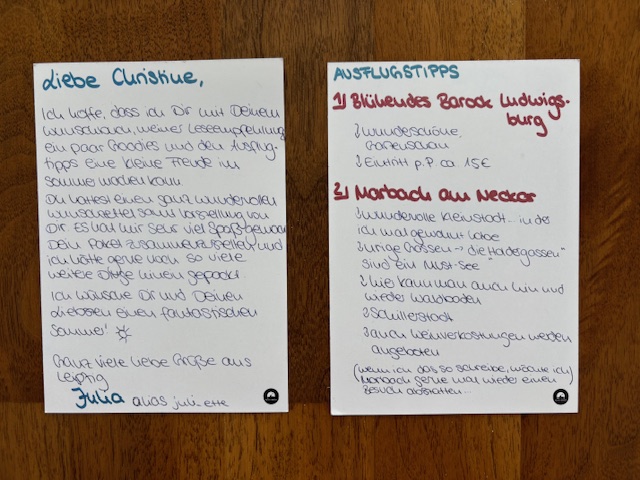 Liebe Christine,
Ich hoffe, dass ich Dir mit Deinem
Wunschbuch, meiner Leseempfehlung
ein paar Goodies und den Ausflug-
tipps eine kleine Freude im
Sommer machen kann
Du hattest einen ganz wundervollen
Wunschzettel samt Vorstellung von
Dir. Es hat mir sehr viel Spaß gemacht
Dein Paket zusammenzustellen und
ich hätte gerne noch so viele
weitere Dinge hinein gepackt.
Ich wünsche Dir und Deinen
Liebsten einen fantastischen
Sommer!
Ganz viele liebe Grüße aus
Leipzig
Julia alias juli_ette
AUSFLUGSTIPPS
1) Blühendes Barock Ludwigs-
burg
wunderschöne,
Gartenschau
Eintritt p.P ca 15€
2) Marbach am Neckar
wundervolle Kleinstadt... in der
ich mal gewohnt habe
urige Gassen → die "Holdergassen"
sind ein Must-See
hier kann man auch hin und
wieder
Schillerstadt
auch Weinverkostungen werden
angeboten
(wenn ich das so schreibe, möchte ich)
Marbach gerne mal wieder einen
Besuch abstatten...